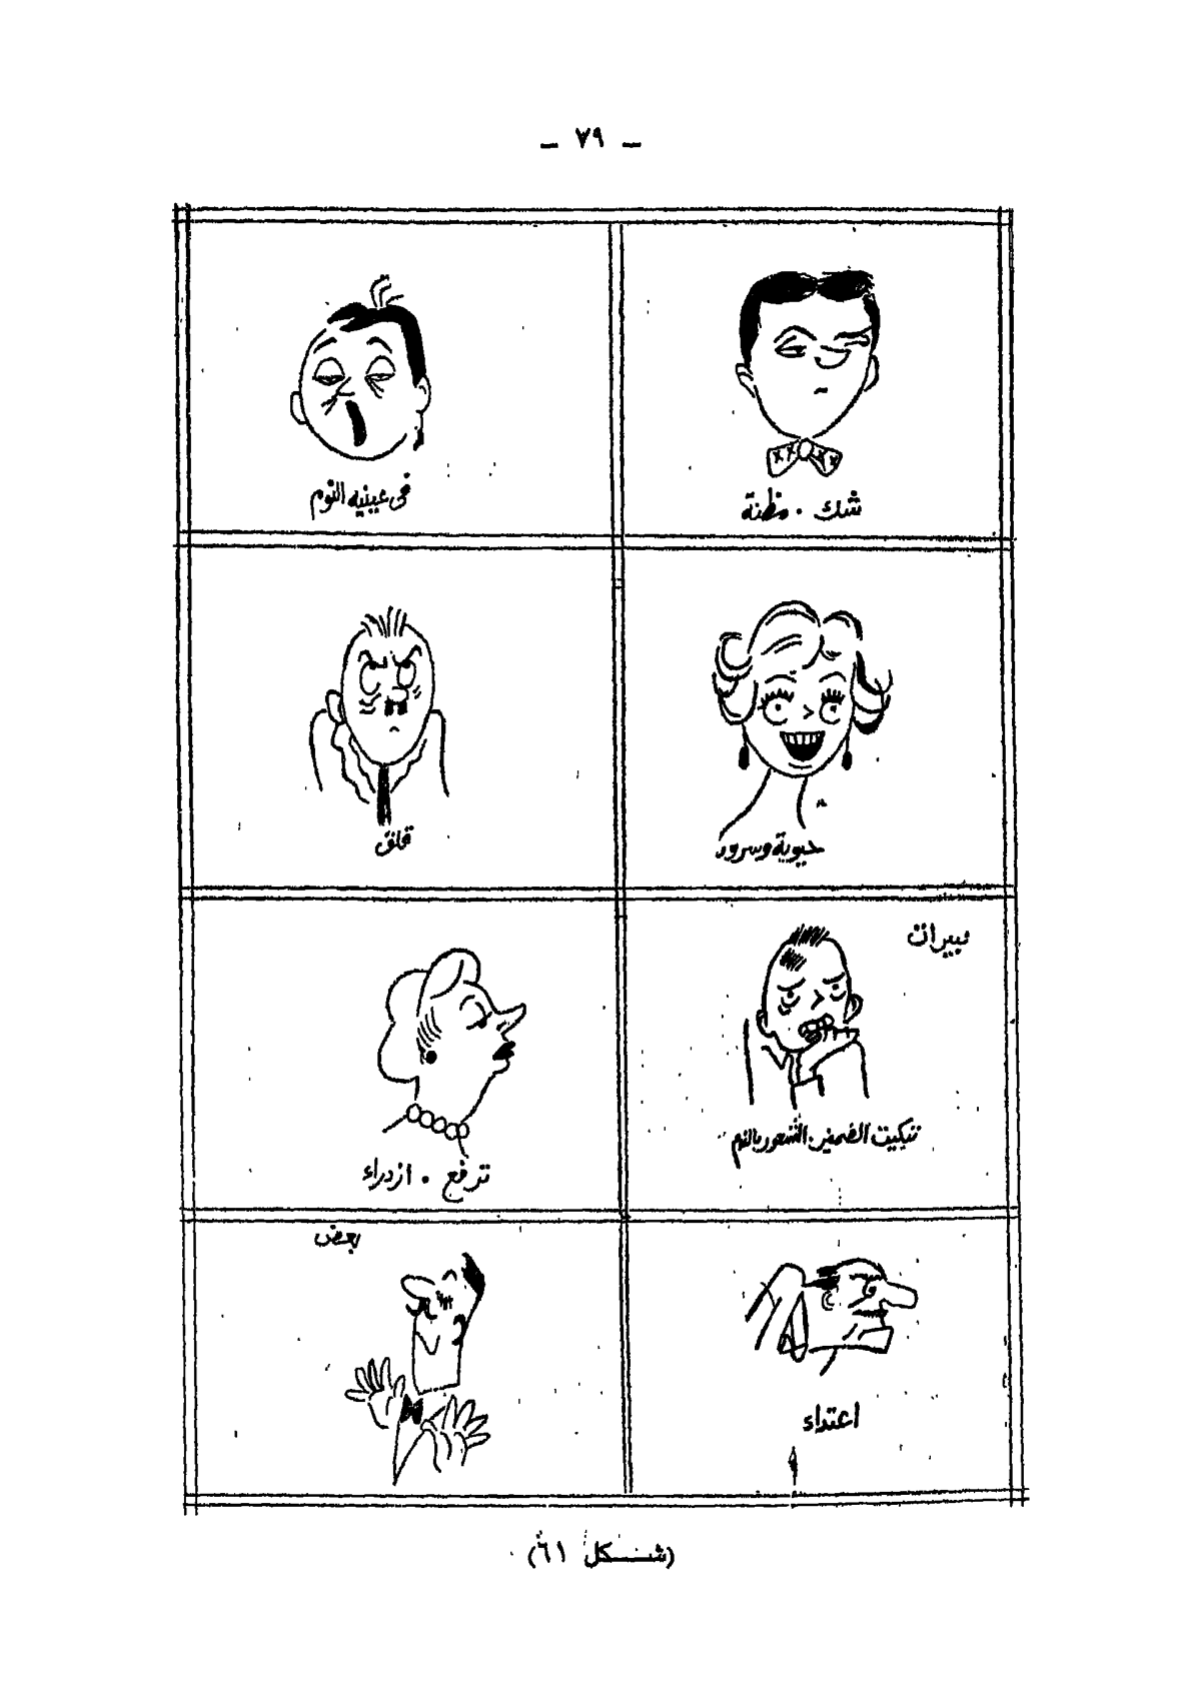 – ٧٩ –
شك . مظنة
فى عينيه النوم
حيوية وسرور
قلق
تبكيت الضمير . الشعور بالذنب
ترفع . ازدراء
بعض
اعتداء
(شكل ٦١)